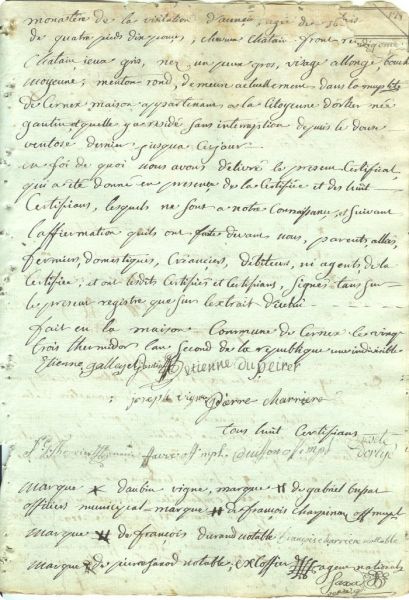 monastère de la visitation d'annecy, agée de
de quatre pieds dix pouces, cheveux chatain front
chatain ieux gris, nez un peux gros, visage allongé bouche
moyenne; menton rond, demeure actuellement dans la
de Cernex maison appartenant a la Citoyenne née
gaulin et quelle ya residé sans interruption depuis le douze
ventose dernier jusqua cejour.
en foi de quoi nous avons délivré le present Certificat,
qui a été donné en presence de la Certifiée et des huit
Certifians, lesquels ne sont a notre Connaissance, et suivant
l'affirmation quils ont faite devant nous, parents, alliés,
fermiers, domestiques, Créanciers, débiteurs, ni agents de la
Certifiée; et ont lesdits Certifiée et Certifians, signés tant sur
le present registre que sur l'extrait d'icelui
fait en la maison Commune de Cernex le vingt
trois thermidor l'an second de la republique une indivisible
Etienne gallay Etienne duperret
joseph vigne pierre charriere
tous huit Certifians
marque daubin vigne, marque de gabriel
officier municipal marque de francois
marque de françois durand notable françois charriere notable
marque de pierre notable, agent national